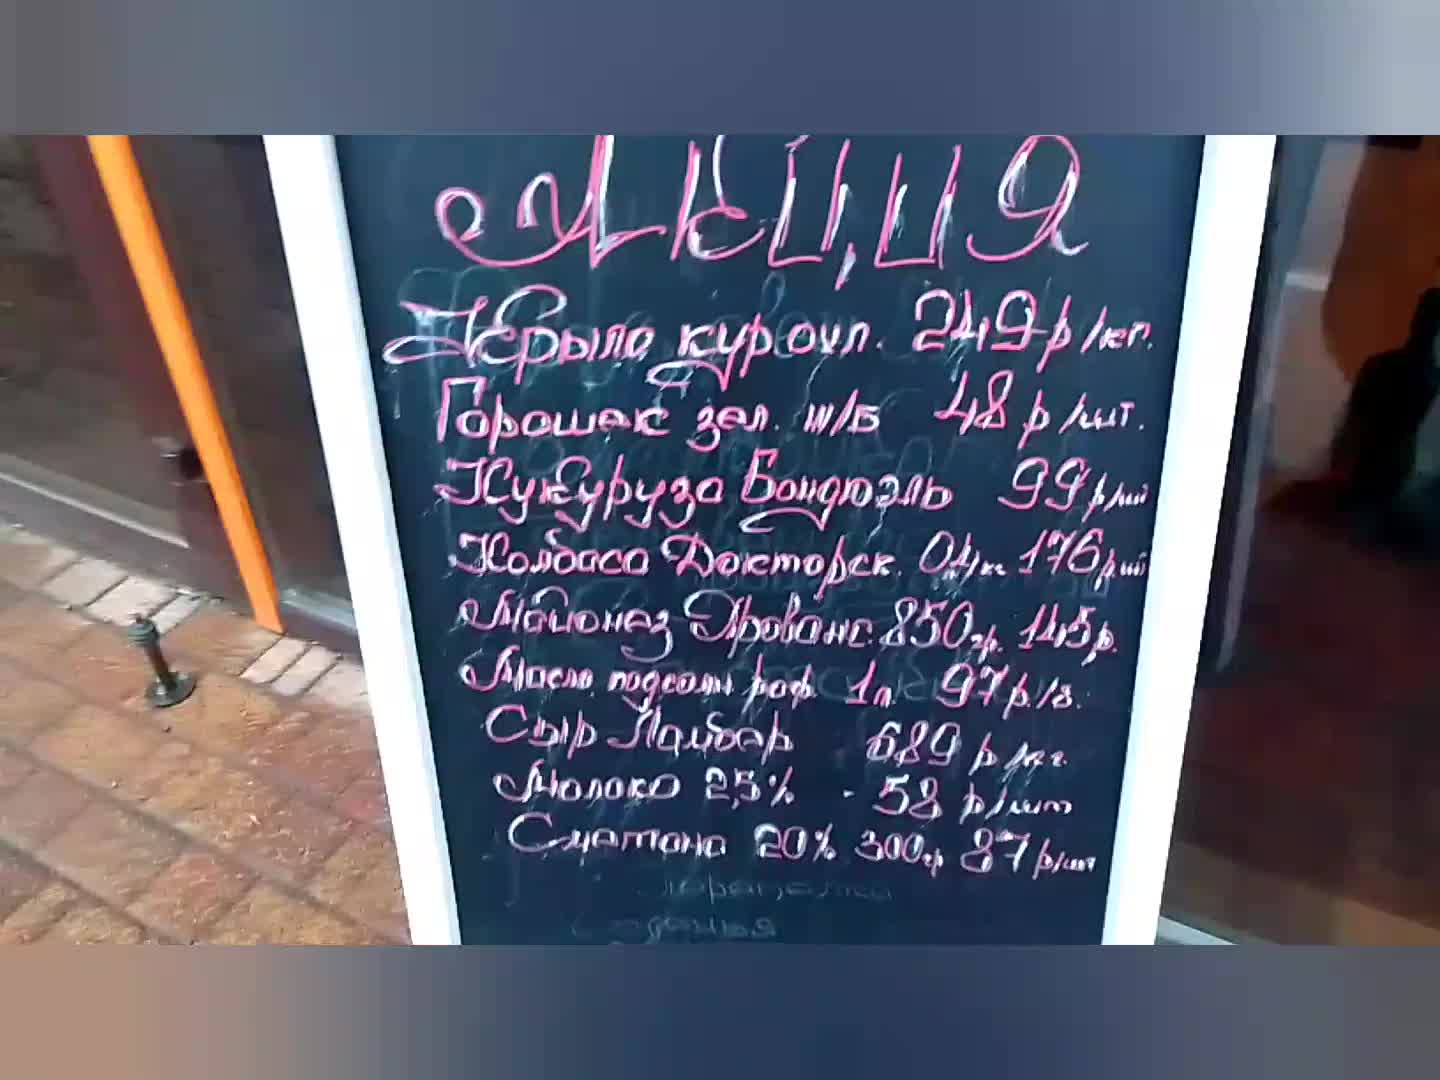 Акция
Крыло кур охл. 249р/кг.
Горошек зел. ж/б 48 р/шт.
Кукуруза Бондюэль 99р/шт
Колбаса Докторск. 0,4кг 176р/шт
Майонез Прованс. 850гр. 145р.
Масло подсолн раф. 1л. 97р./б.
Сыр Ламбер 689 р/кг.
Молоко 2,5% - 58 р/шт
Сметана 20% 300гр 87р/шт